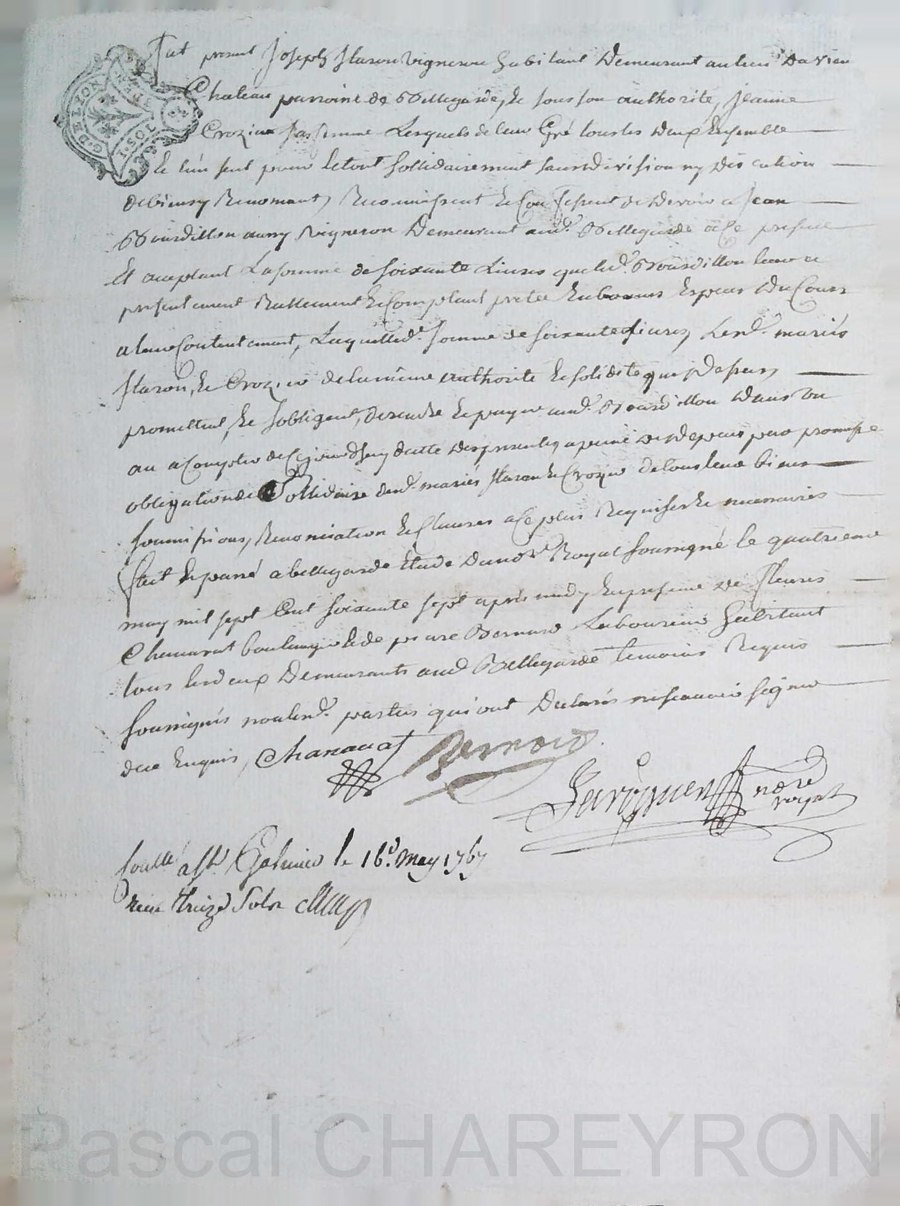 G. DE LION
I. SOL
Fut present Joseph Flaron vigneron habitant Demeurant au lieu Du vieu
Chateau parroisse de Bellegarde, Et sous son authorité, Jeanne
Crozier sa femme Lesquels de leur Gré tous les deux Ensemble
Et l'un seul pour le tout sollidairement sans division ny discution
de biens y Renonçant, Reconnaissent Et Confessent de Devoir a Jean
Bourdillon aussy vigneron Demeurant aud. Bellegarde a ce present
Et aceptant La somme de soixante Livres que led. Bourdillon leur a
presentement Reellement Et Comptant pretée En bonnes Especes Du Cours
a leur Contentement, Laquelle d. somme de soixante Livres, Lesd. mariés
Flaron, Et Crozier de la même authorité Et solidité que Dessus
promettent, Et s'obligent, de rendre Et payer aud. Bourdillon Dans un
an a Compter de Cejourdhuy datte des presentes, a peine de depens par promesse
obligation sollidaire desd. mariés Flaron Et Crozier de tous leurs biens
soumissions, Renonciation Et Clauses a ce plus Requises Et necessaires
fait Et passé a bellegarde Etude Du not.re Royal soussigné le quatrieme
may mil sept Cent soixante sept apres midy En presence de Fleury
Chanavat boulanger Et de pierre Bernard Laboureur habitant
tous les deux Demeurants aud. Bellegarde temoins Requis
soussignés non lesd. parties qui ont Declarés ne sçavoir signer
de ce Enquis, Chanavat Bernard
no.re
royal
Con.llé a St. Galmier le 16.e May 1767
reçu treize sols
Pascal CHAREYRON